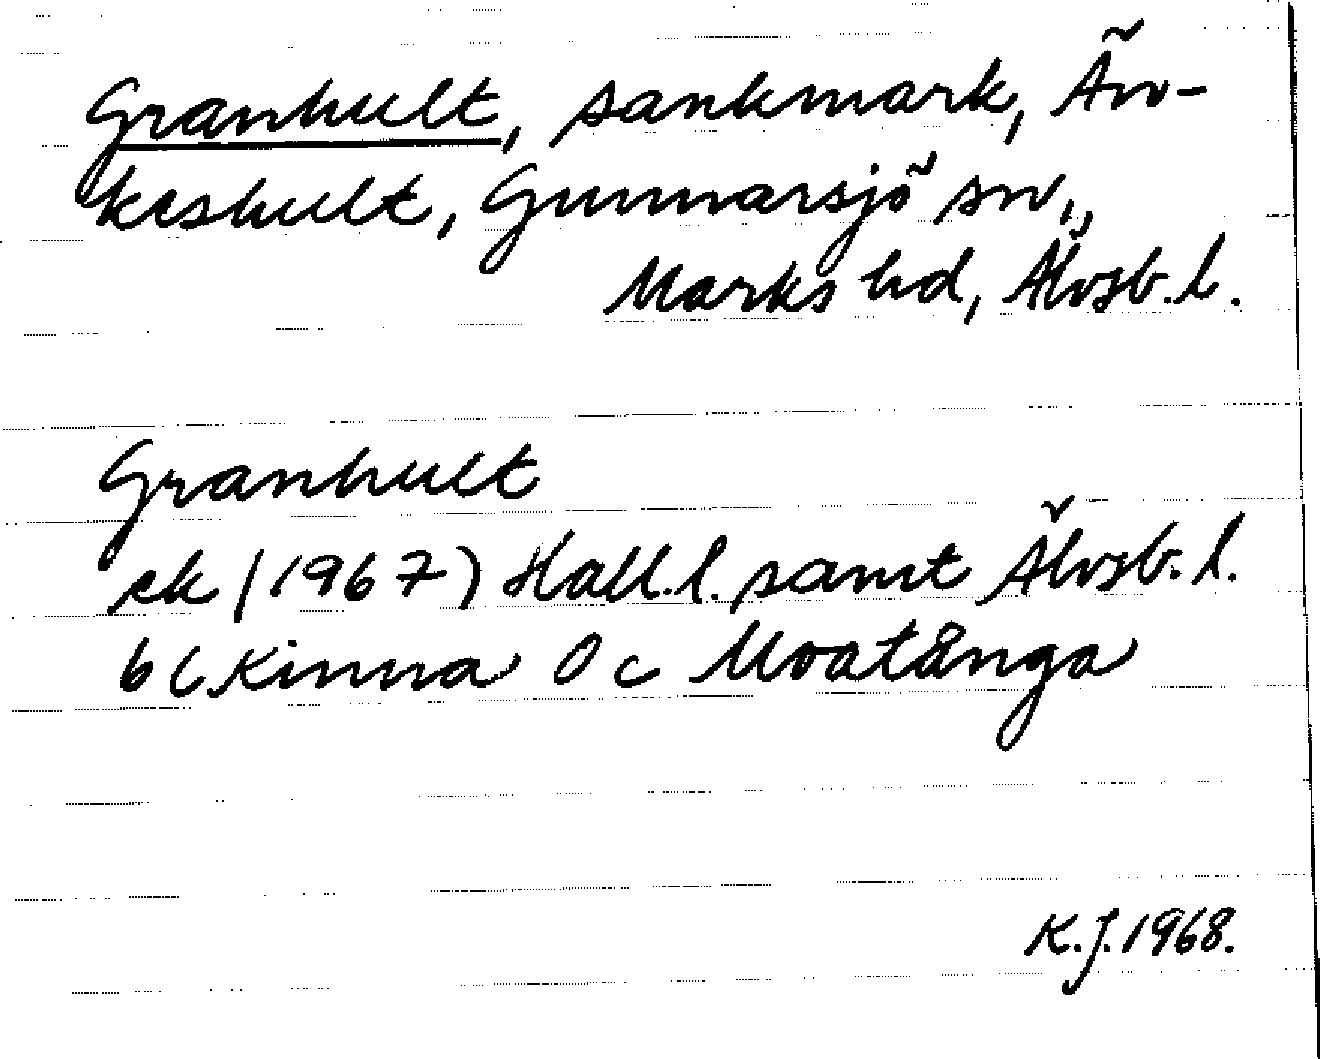 Granhult, sankmark, Äv-
keshult, Gunnarsjö sn.,
Marks hd, Älvsb.l.
Granhult
ek (1967) Hall.l. samt Älvsb.l.
6 C Kinna 0 c Moatånga
K.J. 1968.